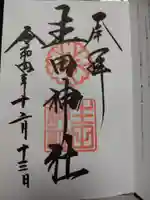 奉拝
生田神社
令和四年十二月十三日